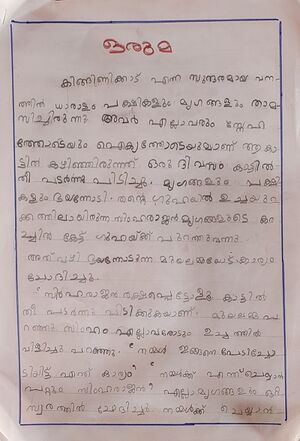 ഒരുമ
കിങ്ങിണിക്കാട് എന്ന സുന്ദരമായ വന-
ത്തിൽ ധാരാളം പക്ഷികളും മൃഗങ്ങളും താമ
സിച്ചിരുന്നു അവർ എല്ലാവരും സ്നേഹ
ത്തോടെയും ഐക്യത്തോടെയുമാണ് ആ കാ
ട്ടിൽ കഴിഞ്ഞിരുന്നത് ഒരു ദിവസം കാട്ടിൽ
തീ പടർന്നു പിടിച്ചു. മൃഗങ്ങളും പക്ഷി
കളും ഭയന്നോടി തന്റെ ഗുഹയിൽ ഉച്ചയുറ
ക്കത്തിലായിരുന്ന സിംഹരാജൻ മൃഗങ്ങളുടെ കര
ച്ചിൽ കേട്ട് ഗുഹയ്ക്ക് പുറത്തുവന്നു.
അതുവഴി ഭയന്നോടുന്ന മുയലമ്മയോട് കാര്യം
ചോദിച്ചു.
സിംഹരാജൻ രക്ഷപ്പെട്ടോളൂ കാട്ടിൽ
തീ പടർന്നു പിടിക്കുകയാണ്. മുയലമ്മ പ
റഞ്ഞു സിംഹം എല്ലാവരോടും ഉച്ചത്തിൽ
വിളിച്ചു പറഞ്ഞു. നമ്മൾ ഇങ്ങനെ പേടിച്ചോ
ടിയിട്ട് എന്ത് കാര്യം? നമുക്ക് എന്ത് ചെയ്യാൻ
പറ്റും സിംഹരാജൻ? എല്ലാ മൃഗങ്ങളും ഒരേ
സ്വരത്തിൽ ചോദിച്ചു. നമുക്ക് ചെയ്യാൻ